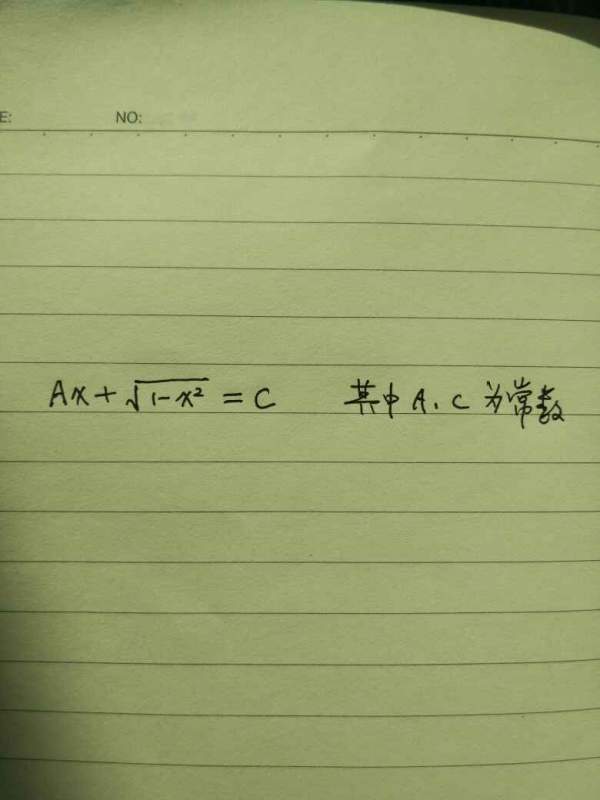 E: NO:
Ax + √(1-x²) = C 其中 A、C 为常数